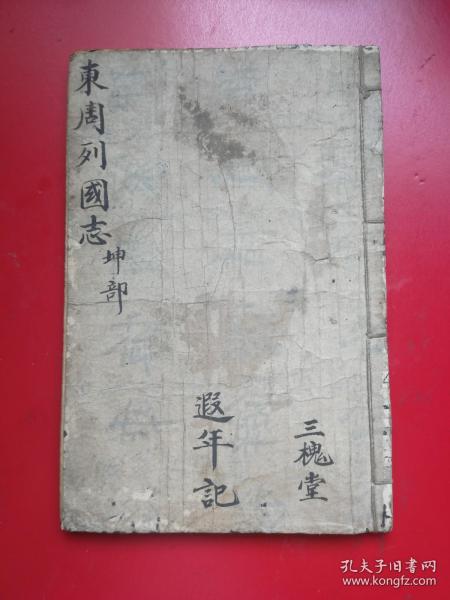 東周列國志
坤部
遐年記
三槐堂
孔夫子旧书网
www.kongfz.com